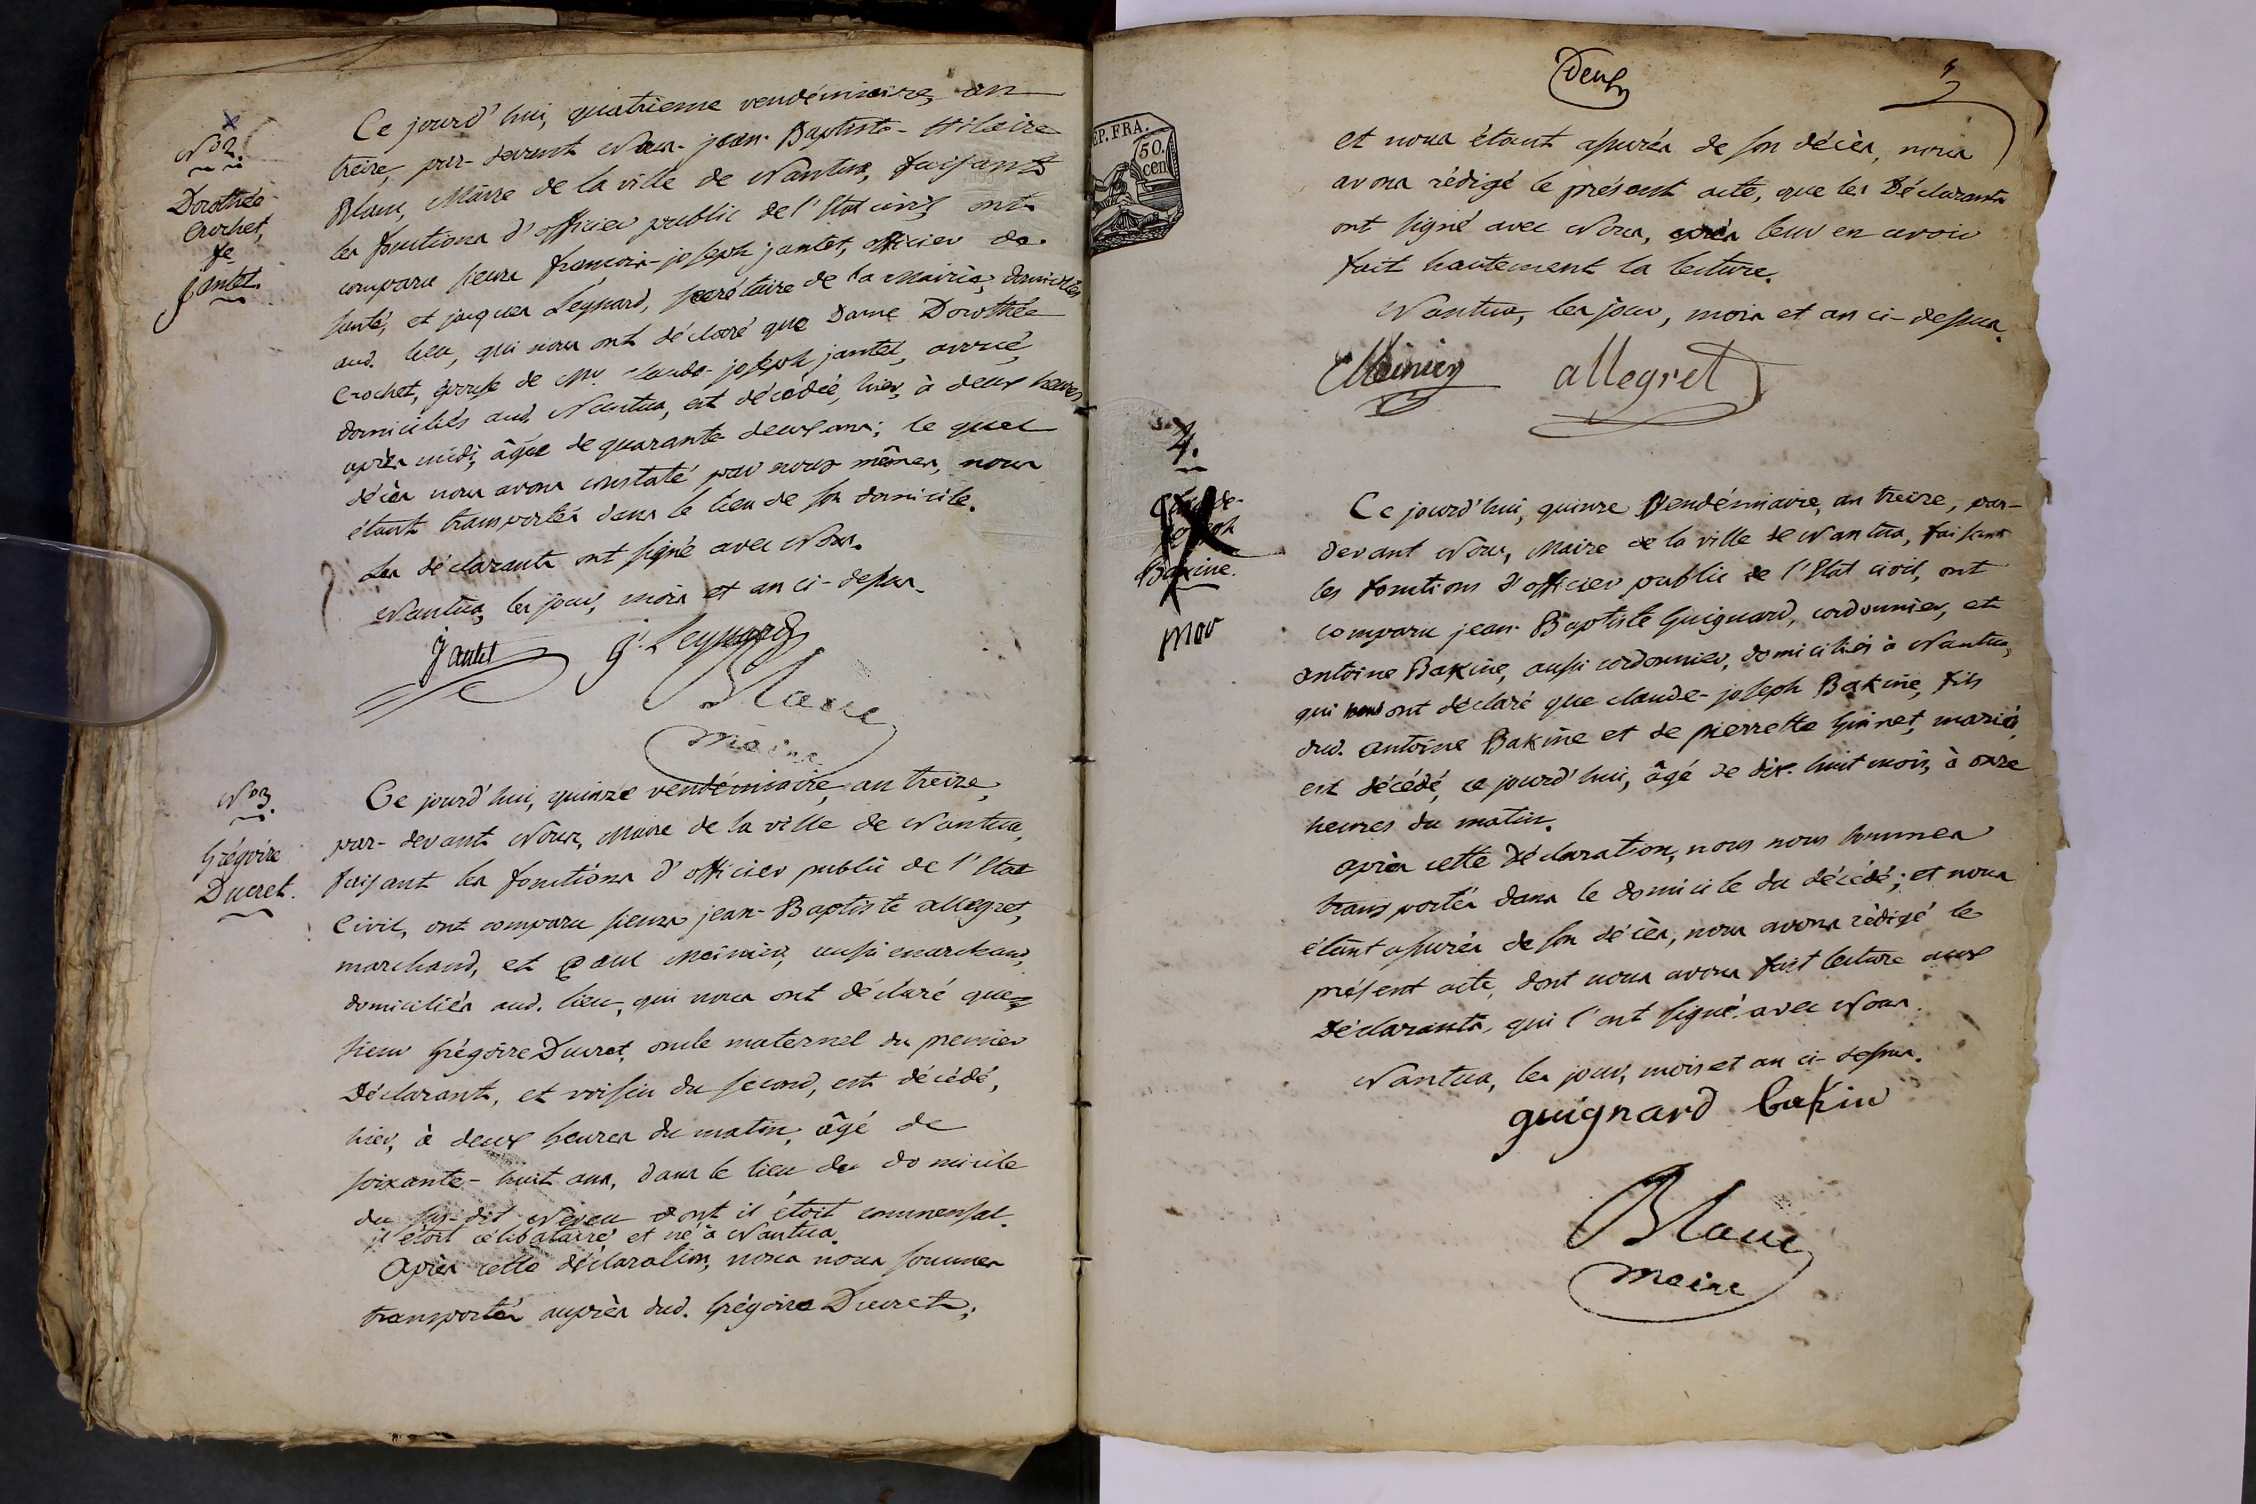 N° 2.
Dorothée
Crochet,
fe
Jantet.
Ce jourd'hui, quatrieme vendémiaire, an
treize, par-devant Nous jean-Baptiste-Hilaire
Blanc, Maire de la ville de Nantua, faisant
les fonctions d'officier public de l'Etat civil, ont
comparu sieurs françois-joseph jantet, officier de
santé, et jacques Leynard, secrétaire de la Mairie, domiciliés
aud. lieu, qui nous ont déclaré que Dame Dorothée
Crochet, épouse de Mr. Claude-joseph jantet, avoué,
domiciliés aud. Nantua, est décédée, hier, à deux heures
après midi, âgée de quarante deux ans; le quel
décès nous avons constaté par nous mêmes, nous
étant transportés dans le lieu de son domicile.
Les déclarants ont signé avec Nous.
Nantua, les jour, mois et an ci-dessus.
Jantet J. Leynard
Blanc
maire
N° 3.
Grégoire
Ducret.
Ce jourd'hui, quinze vendémiaire, an treize,
par-devant Nous, Maire de la ville de Nantua,
faisant les fonctions d'officier public de l'Etat
Civil, ont comparu sieurs jean-Baptiste allegret,
marchand, et Paul Meinier, aussi marchand,
domiciliés aud. lieu, qui nous ont déclaré que
sieur Grégoire Ducret, oncle maternel du premier
Déclarant, et voisin du second, est décédé,
hier, à deux heures du matin, âgé de
soixante-huit ans, dans le lieu du domicile
du sus-dit Neveu dont il étoit commensal.
il étoit célibataire et né à Nantua.
Après cette déclaration, nous nous sommes
transportés auprès dud. Grégoire Ducret;
Deux
EP. FRA.
50
cen
et nous étant assurés de son décès, nous
avons rédigé le présent acte, que les Déclarants
ont signé avec Nous, après leur en avoir
fait hautement la lecture.
Nantua, les jour, mois et an ci-dessus.
Meinier allegret
4.
Claude-
joseph
Bakine.
mov
Ce jourd'hui, quinze Vendémiaire, an treize, par-
devant Nous, Maire de la ville de Nantua, faisant
les fonctions d'officier public de l'Etat civil, ont
comparu jean-Baptiste Guignard, cordonnier, et
antoine Bakine, aussi cordonnier, domiciliés à Nantua,
qui nous ont déclaré que claude-joseph Bakine, fils
dud. antoine Bakine et de pierrette Guinet, mariés,
est décédé, ce jourd'hui, âgé de dix-huit mois, à onze
heures du matin.
après cette Déclaration, nous nous sommes
transportés dans le domicile du décédé; et nous
étant assurés de son décès, nous avons rédigé le
présent acte, dont nous avons fait lecture aux
Déclarants, qui l'ont signé avec Nous.
Nantua, les jour, mois et an ci-dessus.
guignard bakin
Blanc
maire